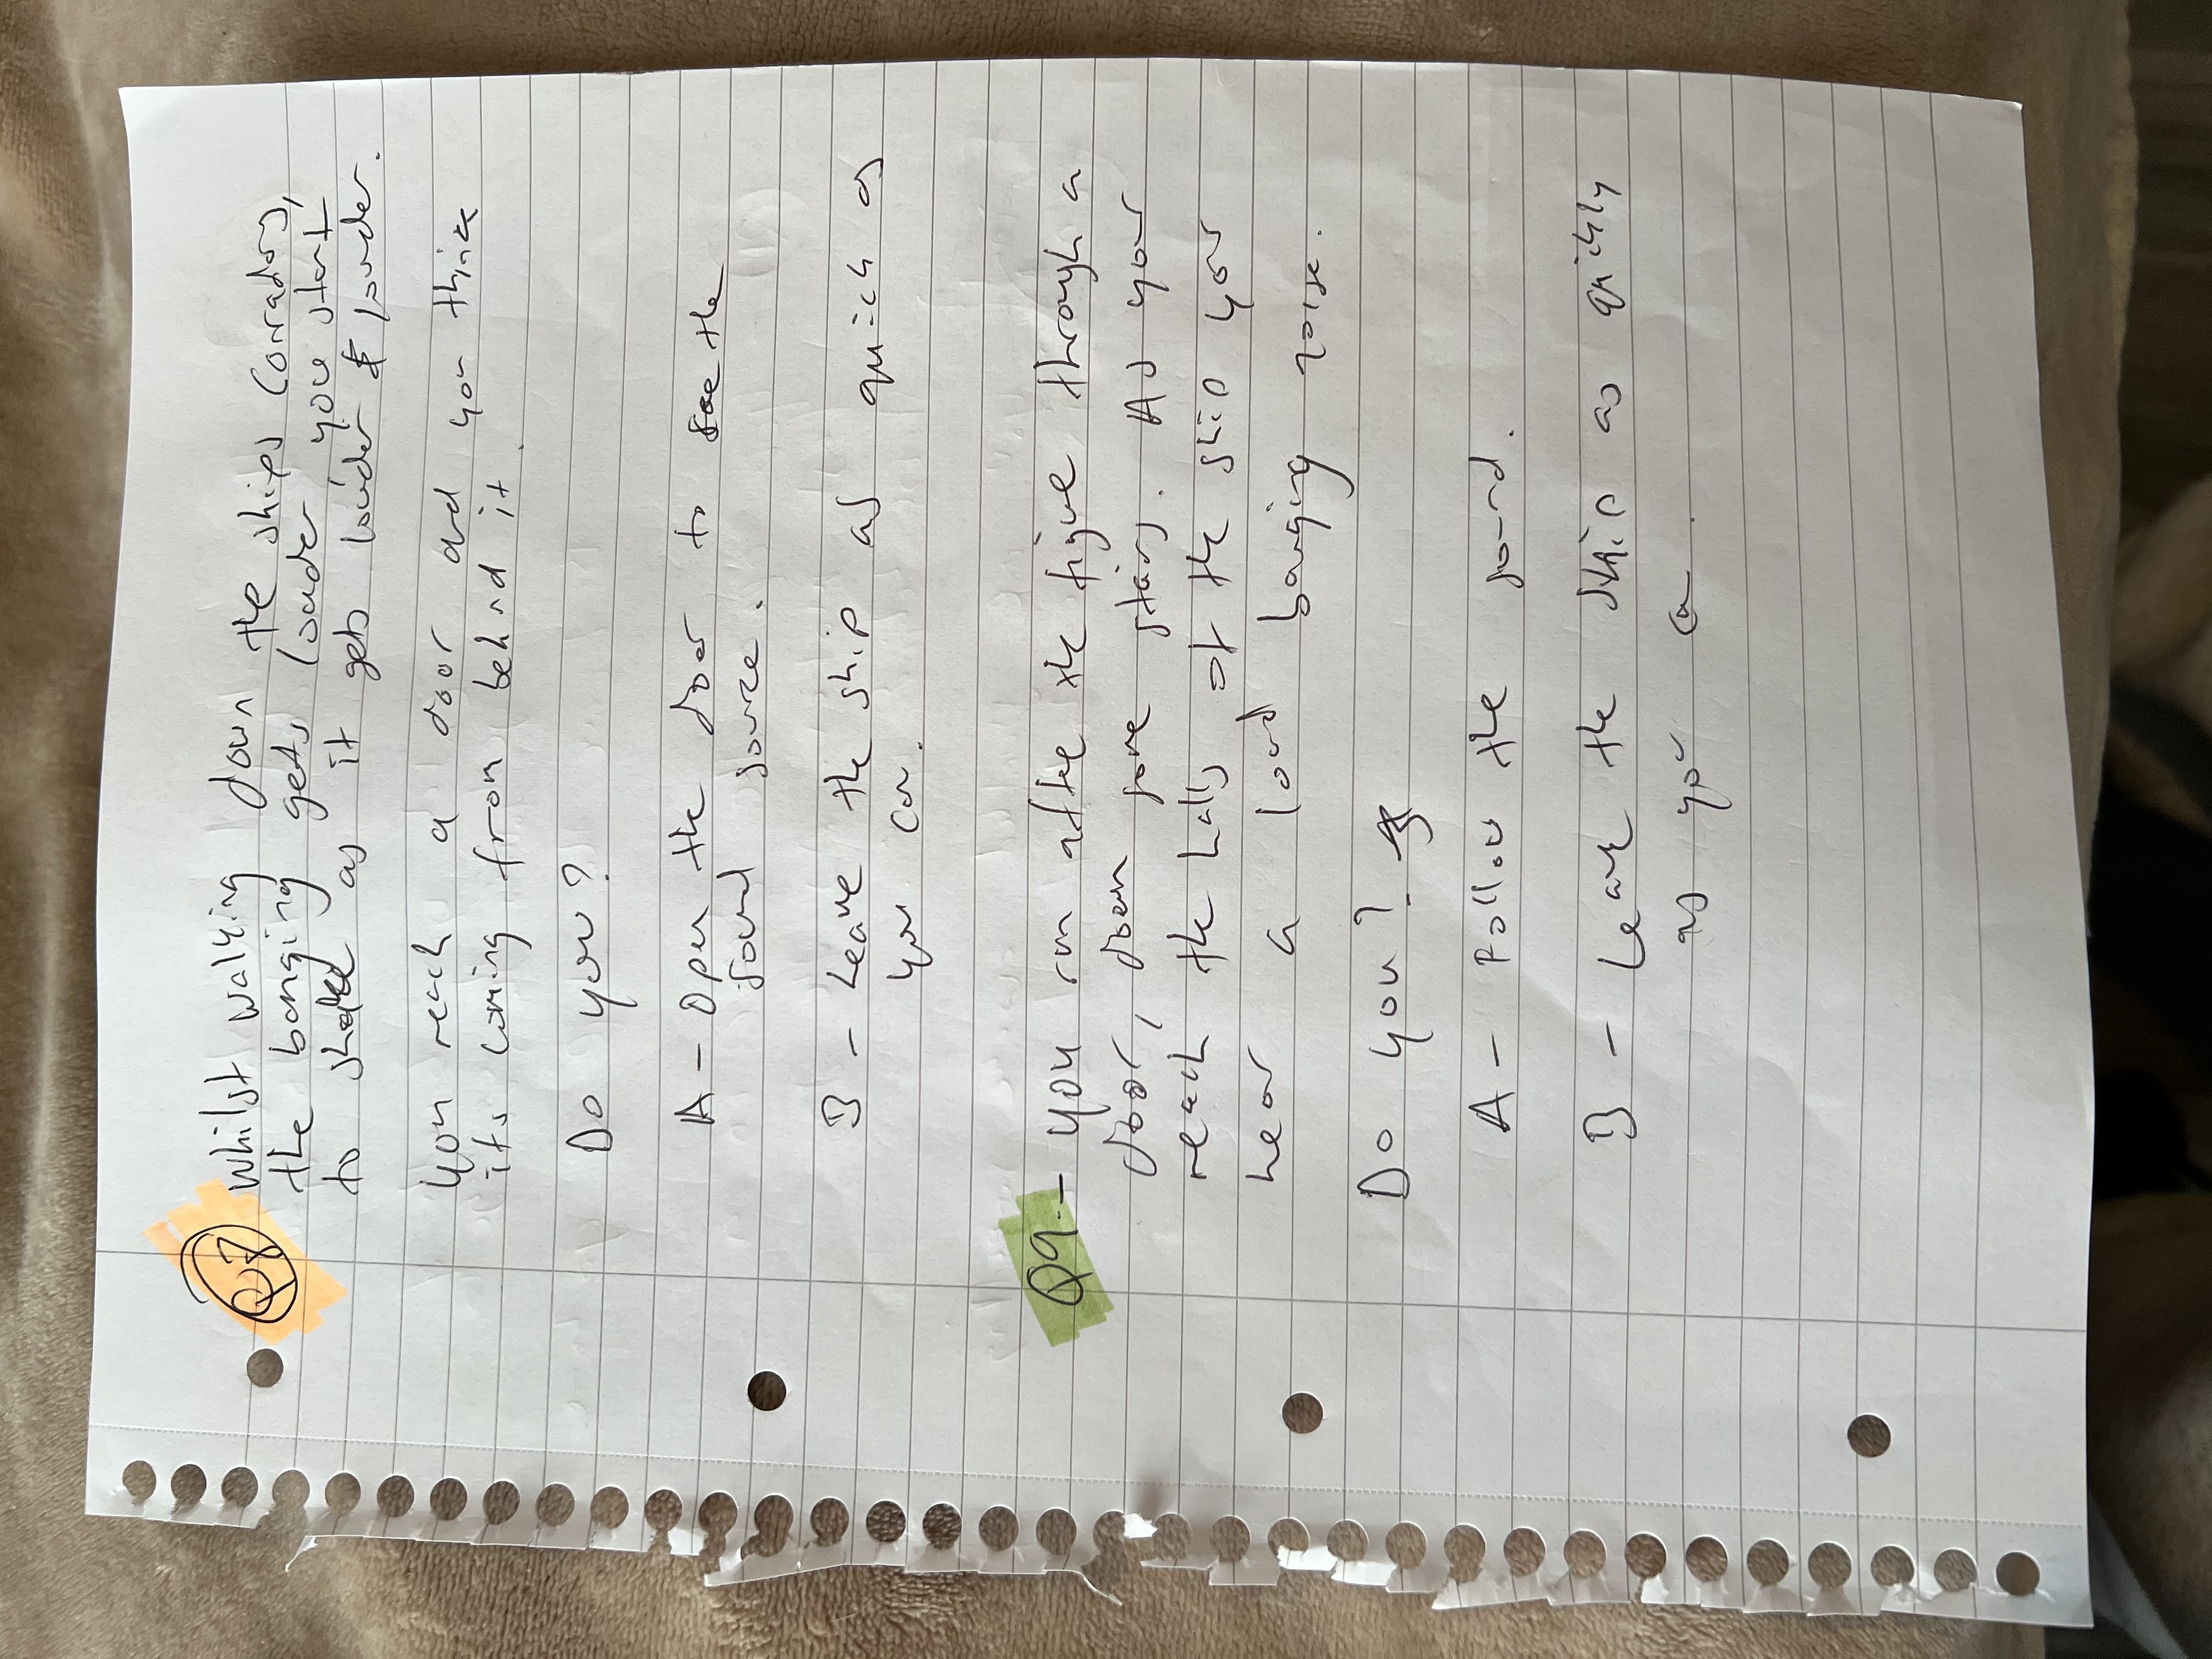 Q8 Whilst walking down the ships Corradors,
the banging gets louder, you start
to shake as it gets louder & louder.
You reach a door and you think
its coming from behind it.
Do you?
A - Open the door to see the
sound source.
B - Leave the ship as quick as
you can.
Q9 - You run after the figure through a
door, down some stairs. As your
reach the halls of the ship you
hear a loud banging noise.
Do you?
A - Follow the sound.
B - Leave the ship as quickly
as you can.